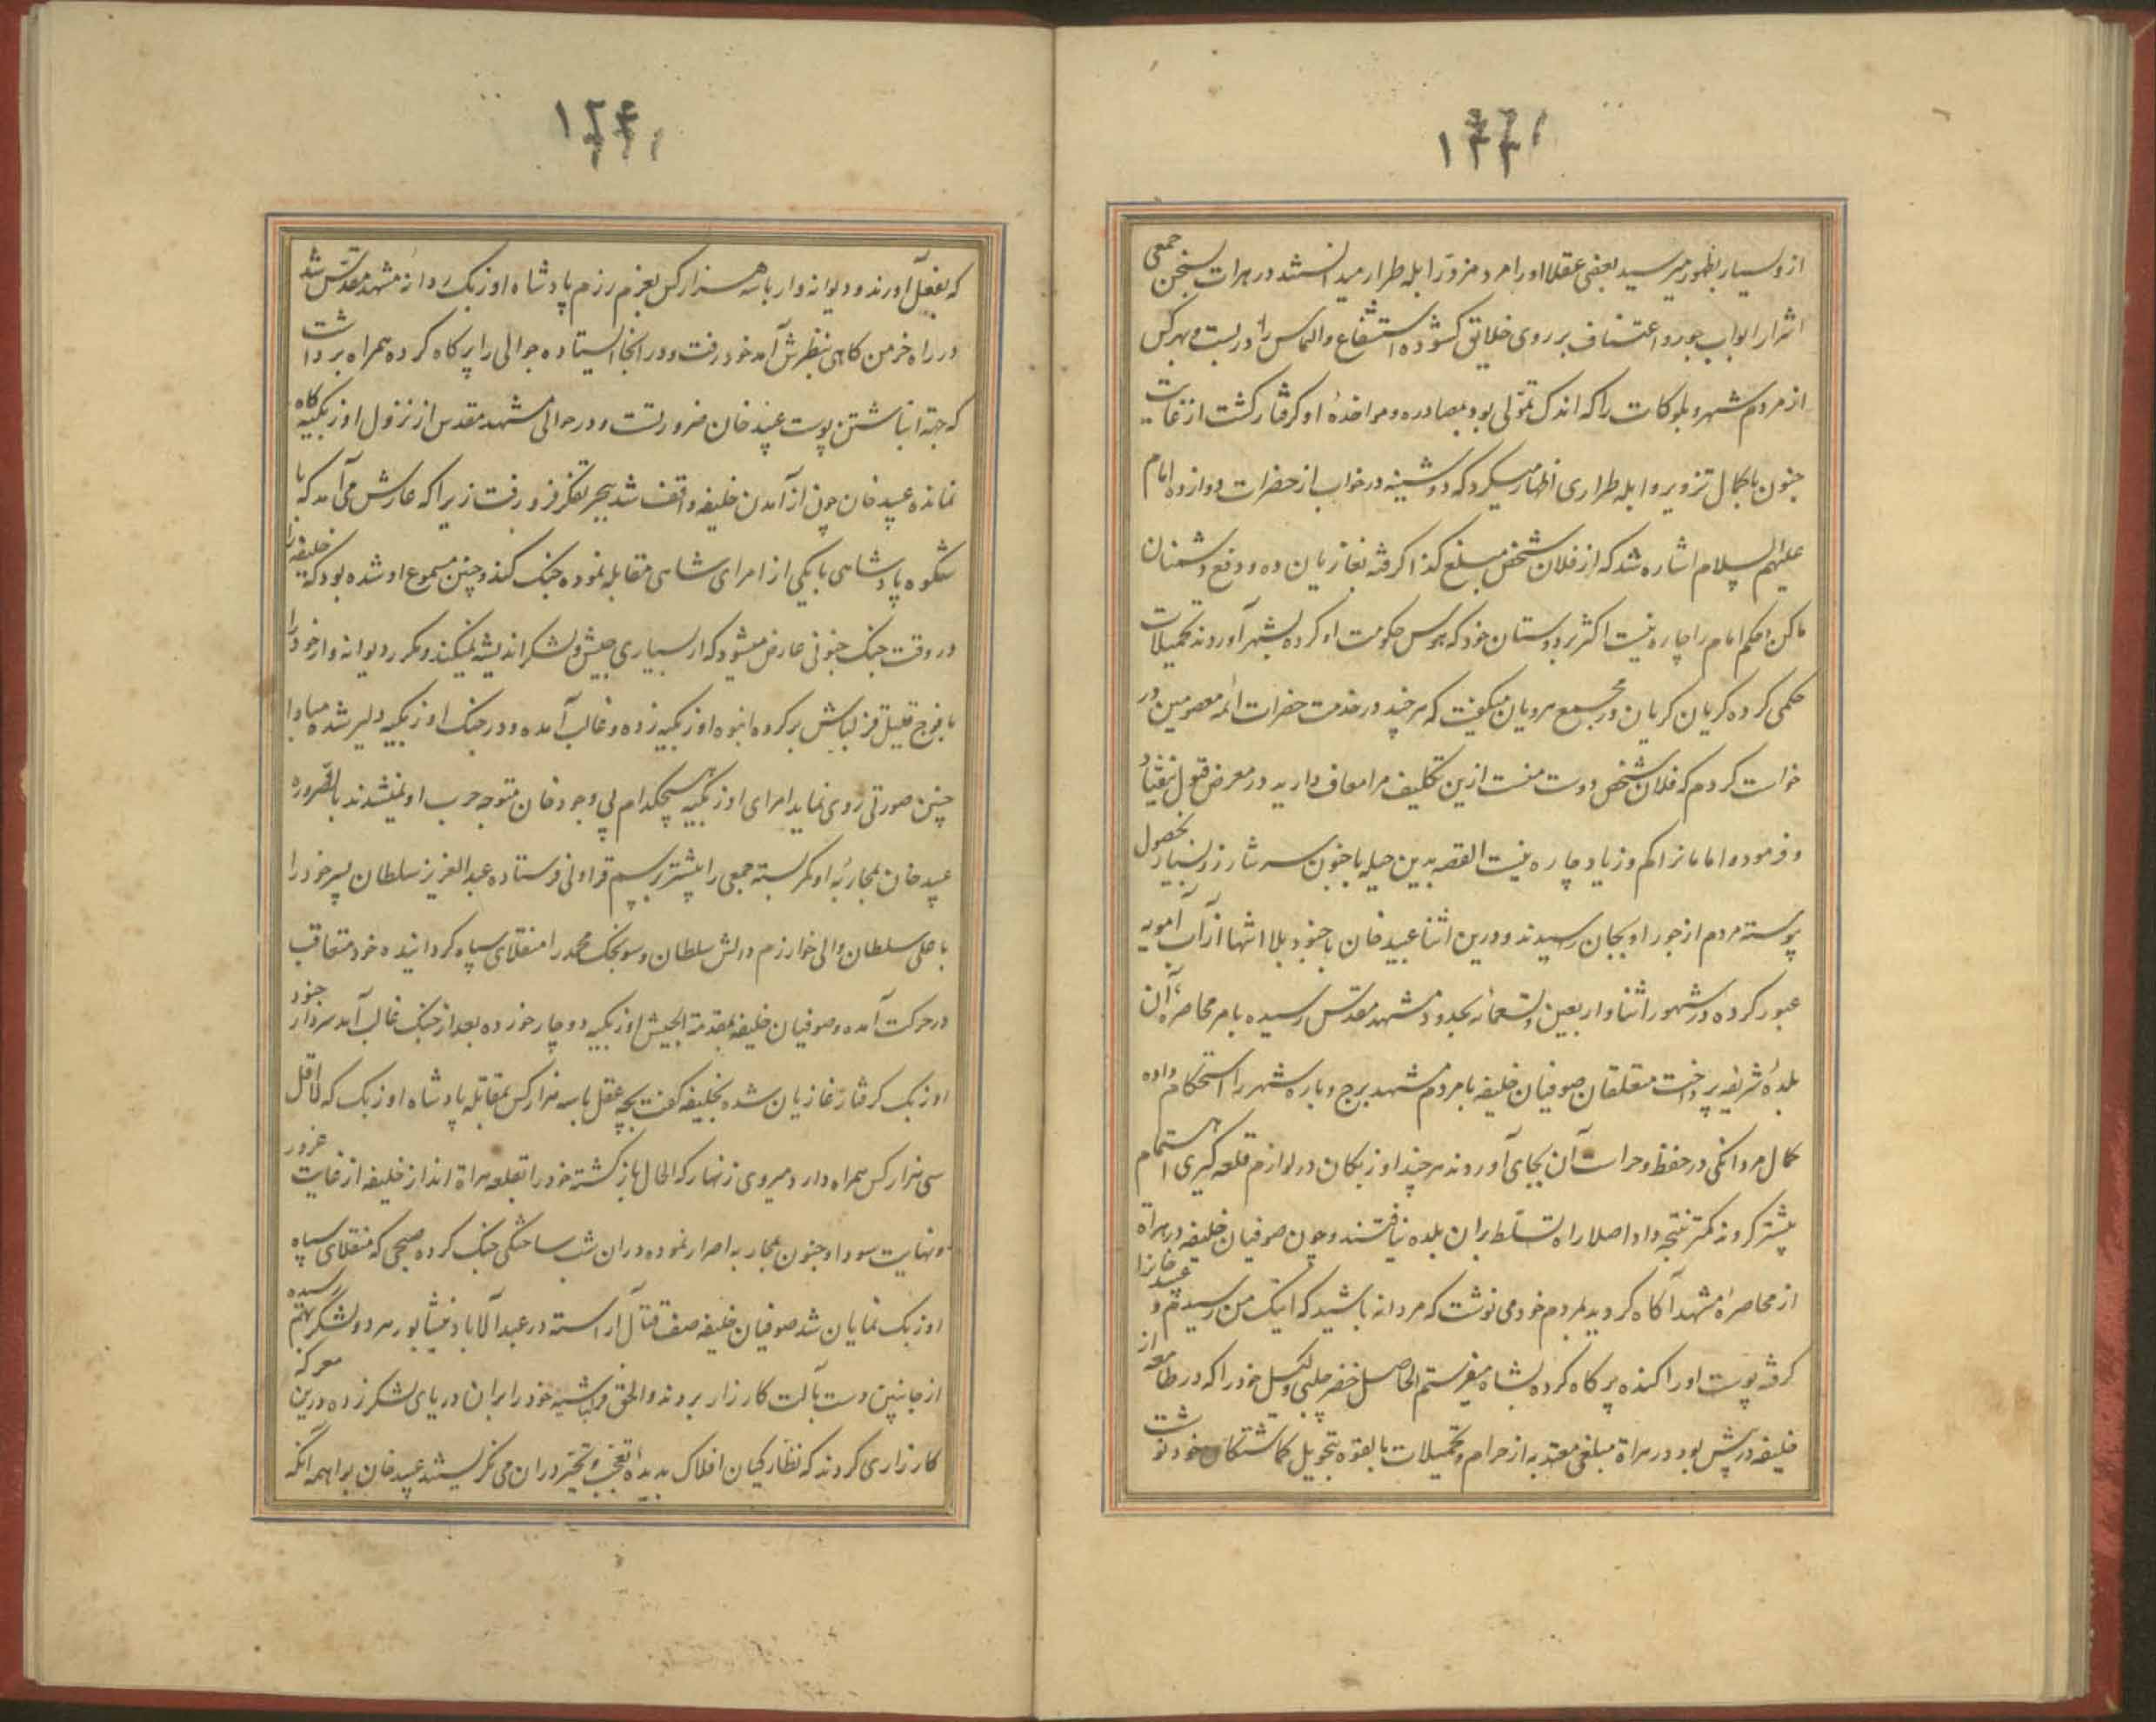 از و بسیار بظهور میرسید بعضی عقلا او را مرد مزور ابله طرار میدانستند در هرات بسخن جمعی
اشرار ابواب جور و اعتساف بر روی خلایق کشوده استشفاع و التماس را در بست و بهر کس
از مردم شهر و بلوکات را که اندک تمولی بود بمصادره و مواخذهٔ او کرفتار کشت از غایت
جنون با کمال تزویر و ابله طراری اظهار میکرد که دوشینه در خواب از حضرات دوازده امام
علیهم السلام اشاره شد که از فلان شخص مبلغ کذا کرفته بغازیان ده و دفع دشمنان
ما کن حکم امام را چاره نیست اکثر بر دوستان خود که بهوس حکومت او کرده بشهر آوردند تحمیلات
حکمی کرده کریان کریان در مجمع هرویان میکفت که هر چند در خدمت حضرات ائمه معصومین در
خواست کردم که فلان شخص دوست منست ازین تکلیف مرا معاف دارید در معرض قبول نیفتاد
و فرمودهٔ امامانرا کم و زیاد چاره نیست القصه بدین حیله با جنون سرشار زر بسیار بحصول
پیوسته مردم از جور او بجان رسیدند و درین اثنا عبید خان با جنود بلا انتها از آب آمویه
عبور کرده در شهور اثنا و اربعین و تسعمائه بحدود مشهد مقدس رسیده بامر محاصره آن
بلدهٔ شریفه پرداخت متعلقان صوفیان خلیفه با مردم مشهد برج و باره شهر را استحکام داده
کمال مردانکی در حفظ و حراست آن بجای آوردند هر چند اوزبکان در لوازم قلعه کیری اهتمام
بیشتر کردند کمتر نتیجه داد و اصلا راه تسلط بران بلده نیافتند و چون صوفیان خلیفه در هراة
از محاصرهٔ مشهد آکاه کردید بمردم خود می نوشت که مردانه باشید که اینک من رسیدم و عبید خانرا
کرفته پوست او را کنده پر کاه کرده بشاه میفرستم الحاصل خضر چلبی وکیل خود را که در طامعه از
خلیفه در پیش بود در هراة مبلغی معتد به از حرام و تحمیلات بالقوه بتحویل کماشتکان خود نوشت
که بفعل آورند و دیوانه وار با سه هزار کس بعزم رزم پادشاه اوزبک روانهٔ مشهد مقدس شد
در راه خرمن کاهی بنظرش آمد خود رفت و در انجا ایستاده جوالی را پر کاه کرده همراه برداشت
که جهة انباشتن پوست عبید خان ضرورتست و در حوالی مشهد مقدس از نزول اوزبکیه کاه
نمانده عبید خان چون از آمدن خلیفه واقف شد ببحر تفکر فرو رفت زیرا که عارش می آمد که با
شکوه پادشاهی با یکی از امرای شاهی مقابله نموده جنک کند و چنین مسموع او شده بود که خلیفه را
در وقت جنک جنونی عارض میشود که از بسیاری جیش و لشکر اندیشه نمیکند و مکرر دیوانه وار خود را
با فوج قلیل قزلباش بر کروه انبوه اوزبکیه زده و غالب آمده و در جنک اوزبکیه دلیر شده مبادا
چنین صورتی روی نماید امرای اوزبکیه هیچکدام بی وجود خان متوجه حرب او نمیشدند بالضروره
عبید خان بمحاربهٔ او کمر بسته جمعی را پیشتر برسم قراولی فرستاده عبد العزیز سلطان پسر خود را
با علی سلطان والی خوارزم و سلطان و سونجک محمد را منقلای سپاه کردانیده خود متعاقب
در حرکت آمده و صوفیان خلیفه بمقدمة الجیش اوزبکیه دوچار خورده بعد از جنک غالب آمد سردار جنود
اوزبک کرفتار غازیان شده بخلیفه کفت بچه عقل با سه هزار کس بمقابله پادشاه اوزبک که لااقل
سی هزار کس همراه دارد میروی زنهار که الحال باز کشته خود را بقلعه هراة انداز خلیفه از غایت غرور
و نهایت سودا و جنون بمحاربه اصرار نموده دران شب ساختکی جنک کرده صبحی که منقلای سپاه
اوزبک نمایان شد صوفیان خلیفه صف قتال آراسته در عبدالاباد نیشابور هر دو لشکر بهم رسیده
از جانبین دست بآلت کارزار بردند و الحق قزلباشیه خود را بران دریای لشکر زده درین معرکه
کارزاری کردند که نظارکیان افلاک بدیدهٔ تعجب و تحیر دران می نکریستند عبید خان بواهمه آنکه